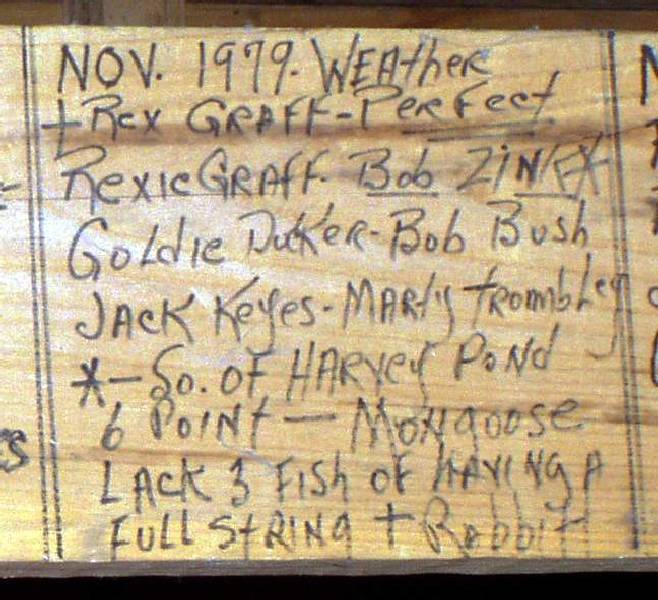 NOV. 1979. WEAther
+ Rex GRAFF - PERFect
Rexie GRAFF. Bob
Goldie Duker - Bob Bush
JACK Keyes - MARty trombley
* - So. OF HARVEy PoND
6 PoiNt — MoNgoose
LACK 3 Fish oF hAViNg A
FULL StRiNg + Rabbit